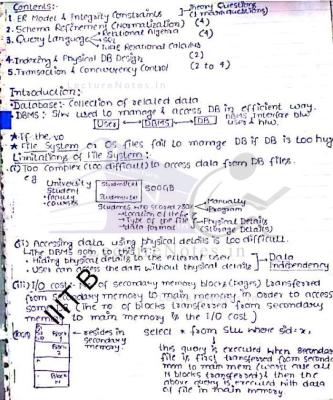 Contents:-
1. ER Model & Integrity Constraints
Theory Questions
2. Schema Refinement (Normalization) (4)
3. Query Language
Relational Algebra (4)
SQL
Tuple Relational Calculus
4. Indexing & Physical DB Design (2)
5. Transaction & Concurrency Control (2 to 4)
Introduction:
Database:- Collection of related data
DBMS: S/w used to manage & access DB in efficient way.
User DBMS DB
DBMS Interface b/w user & DB
If the
File System or OS files fail to manage DB if DB is too huge
Limitations of File System:
(i) Too Complex (too difficult) to access data from DB files.
eg
University
Student
faculty
courses
500GB
Manually
Program
Location of the file
Type of the file
data format
Physical Details
(Storage Details)
(ii) Accessing data using physical details is too difficult.
hiding physical details to the external user
User can access the data without physical details
Data Independency
(iii) I/O cost: No of secondary memory blocks (pages) transferred
from Secondary memory to main memory in order to access
some (the no of blocks transferred from secondary
memory to main memory is the I/O cost)
Block 1
resides in
secondary
memory.
Block 2
Block N
select * from Stu where sid=x,
this query is executed when secondary
file is first transferred from secondary
mem to main mem (worst case all
N blocks transferred) & then the
above query is executed with data
of file in main memory